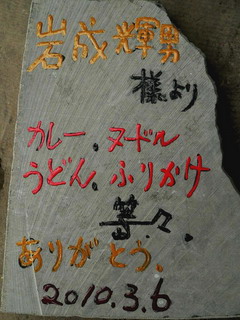 岩成輝男
様より
カレー、ヌードル
うどん、ふりかけ
等々、
ありがとう、
2010.3.6